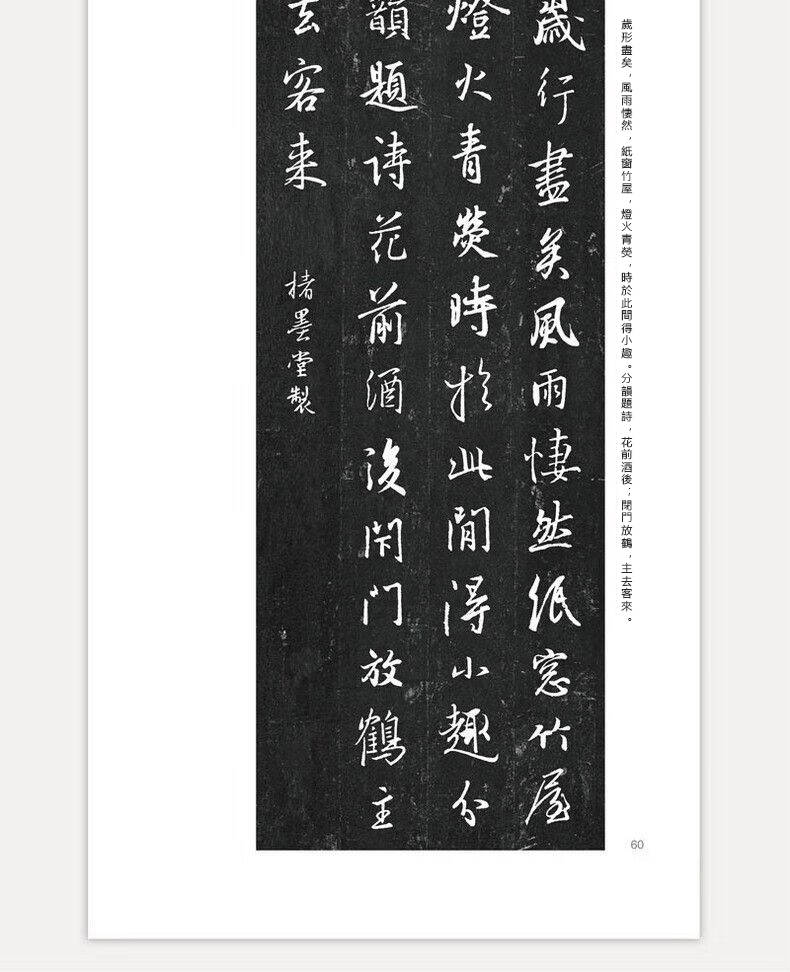 歲形盡矣，風雨悽然，紙窗竹屋，燈火青熒，時於此間得小趣。分韻題詩，花前酒後；閉門放鶴，主去客來。
歲行盡矣風雨悽然紙窓竹屋
燈火青熒時於此間得小趣分
韻題詩花前酒後閇門放鶴主
去客来
楮墨堂製
60